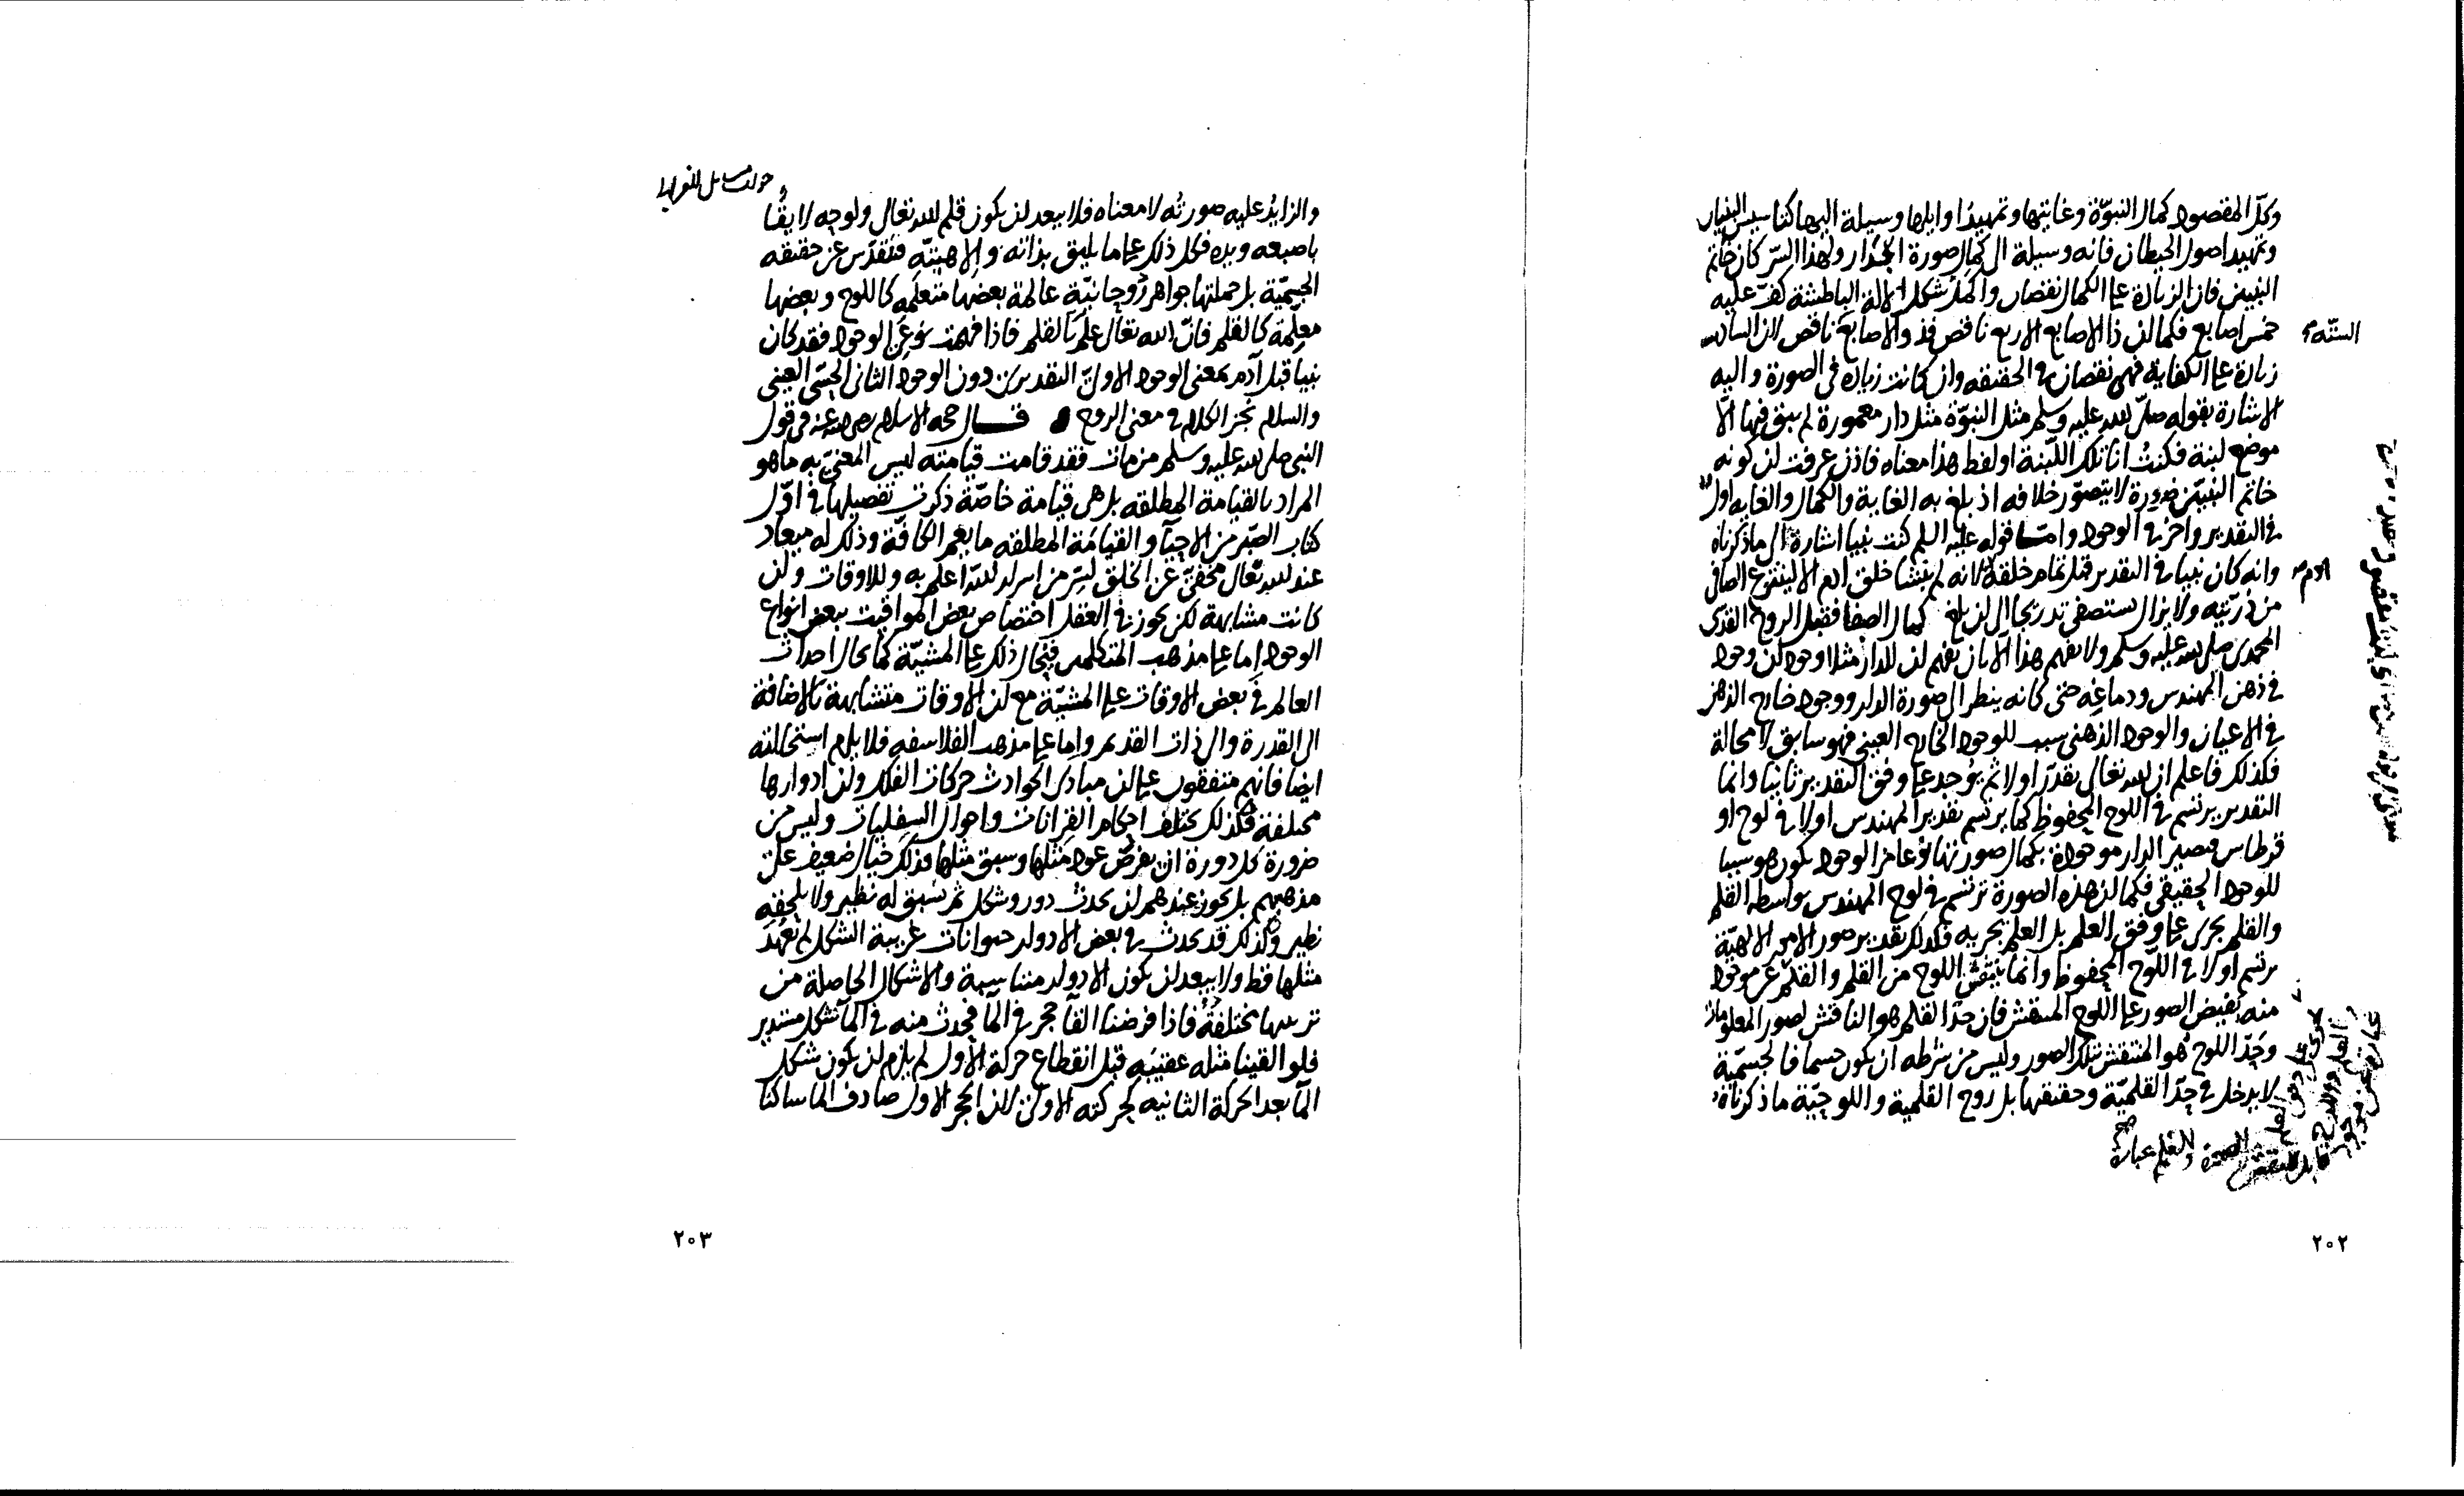 وكذا المقصود كمال النبوة وغايتها وتمهيد اوايلها وسيلة اليها كتاسيس البنيان
وتمهيد اصول الحيطان فانه وسيلة الى كمال صورة الدار ولهذا السر كان خاتم
النبيين فان الزيادة على الكمال نقصان وكمال شكل الالة الباطشة كف عليه
خمس اصابع فكما ان ذا الاصابع الاربع ناقص فذو الاصابع ناقص لان السادسة
الستة
زيادة على الكفاية فهى نقصان فى الحقيقه وان كانت زيادة فى الصورة واليه
الاشارة بقوله صلى الله عليه وسلم مثل النبوة مثل دار معمورة لم يبق فيها الا
موضع لبنة فكنت انا تلك اللبنة او لفظ هذا معناه فاذن عرفت ان كونه
خاتم النبيين ضرورة لا يتصور خلافه اذ بلغ به الغاية والكمال والغايه اول
فى التقدير واخر فى الوجود واما قوله عليه السلم كنت نبيا اشارة الى ما ذكرناه
وانه كان نبيا فى التقدير قبل تمام خلقة لانه لم ينشا خلق ادم الا لينتزع الصافى
ادم
من ذريته ولا يزال يستصفى تدريجا الى ان بلغ كمال الصفا فقبل الروح القدسى
المحمدى صلى الله عليه وسلم ولا يفهم هذا الا بان يفهم ان للدار مثلا وجودين وجود
فى ذهن المهندس ودماغه حتى كانه ينظر الى صورة الدار ووجود خارج الذهن
فى الاعيان والوجود الذهنى سبب للوجود الخارج العينى فهو سابق لا محالة
فكذلك فاعلم ان الله تعالى يقدر اولا ثم يوجد على وفق التقدير ثانيا وانما
التقدير يرتسم فى اللوح المحفوظ كما يرتسم تقدير المهندس اولا فى لوح او
قرطاس فيصير الدار موجودة بكمال صورتها نوعا من الوجود يكون هو سببا
للوجود الحقيقى فكما ان هذه الصورة ترتسم فى لوح المهندس بواسطه القلم
والقلم يجرى على وفق العلم بل العلم يجريه فكذلك تقدير صور الامور الالهية
يرتسم اولا فى اللوح المحفوظ وانما ينتقش اللوح من القلم والقلم عن موجود
منه يفيض الصور على اللوح المنتقش فان حد القلم هو الناقش لصور المعلومات
وحد اللوح هو المنتقش بتلك الصور وليس من شرطه ان يكون جسما فالجسمية
لا يدخل فى حد القلمية وحقيقتها بل روح القلمية واللوحية ما ذكرناه
والقلم عبارة
٢٠٢
والزايد عليه صورته لا معناه فلا يبعد ان يكون قلم الله تعالى ولوحه لايقا
باصبعه ويده فكل ذلك على ما يليق بذاته والاهيته فتقدس عن حقيقه
الجسمية بل جملتها جواهر روحانية عالمة بعضها متعلمه كاللوح وبعضها
معلمة كالقلم فان الله تعالى علم بالقلم فاذا فهمت نوعى الوجود فقد كان
نبيا قبل ادم بمعنى الوجود الاول التقديرى دون الوجود الثانى الحسى العينى
والسلام نجز الكلام فى معنى الروح قال حجه الاسلام رضى الله عنه فى قول
النبى صلى الله عليه وسلم من مات فقد قامت قيامته ليس المعنى به ما هو
المراد بالقيامة المطلقه بل هى قيامة خاصة ذكرت تفصيلها فى اول
كتاب الصبر من الاحيآ والقيامة المطلقه ما يعم الكافة وذلك له ميعاد
عند الله تعالى مخفى عن الخلق لسر من اسرار الله اعلم به وللاوقات وان
كانت متشابهة لكن يجوز فى العقل اختصاص بعض المواقيت ببعض انواع
الوجود اما على مذهب المتكلمين فيحال ذلك على المشية كما يحال احداث
العالم فى بعض الاوقات على المشية مع ان الاوقات متشابهة بالاضافة
الى القدرة والى ذات القديم واما على مذهب الفلاسفه فلا يلزم استحالته
ايضا فانهم متفقون على ان مبادى الحوادث حركات الفلك وان ادوارها
مختلفة فكذلك يختلف احكام القرانات واحوال السفليات وليس من
ضرورة كل دورة ان يفرض عود مثلها وسبق مثلها فذلك خيال ضعيف على
مذهبهم بل يجوز عندهم ان يحدث دور وشكل ثم يسبق له نظير ولا يلحقه
نظير وكذلك قد يحدث فى بعض الادوار حيوانات غريبة الشكل لم يعهد
مثلها قط ولا يبعد ان يكون الادوار متناسبة والاشكال الحاصلة من
تركيبها مختلفة فاذا فرضنا القآ حجر فى المآ فيحدث منه فى المآ شكل مستدير
فلو القينا مثله عقيبه قبل انقطاع حركة الاول لم يلزم ان يكون شكل
المآ بعد الحركة الثانيه كحركته الاولى لان الحجر الاول صادف المآ ساكنا
٢٠٣